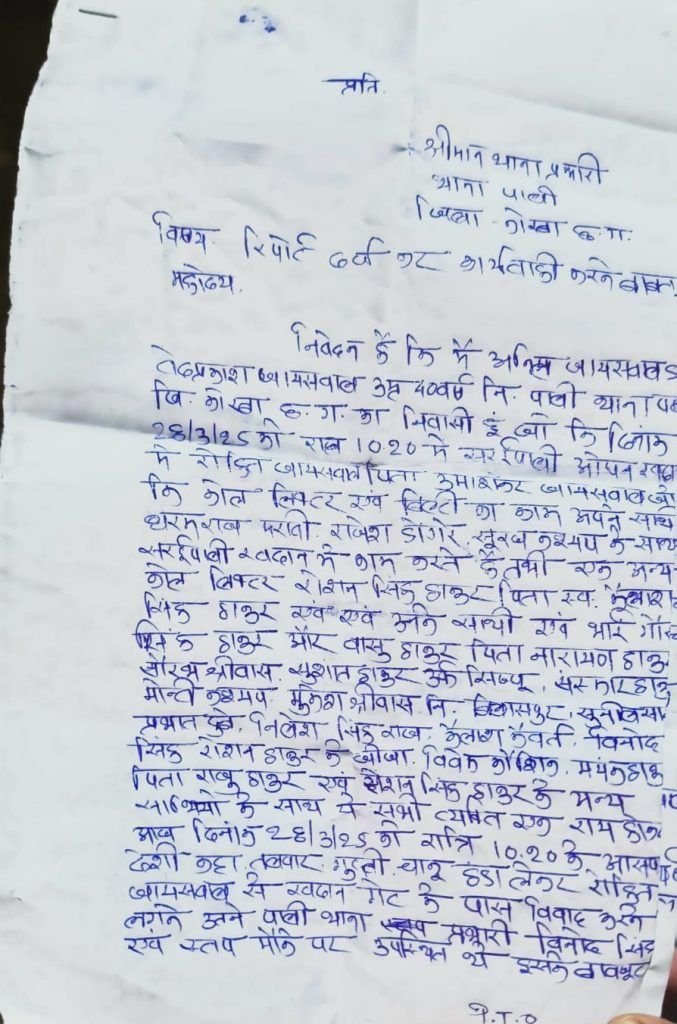 प्रति.
श्रीमान थाना प्रभारी
थाना पाली
जिला कोरबा छ.ग.
विषय. रिपोर्ट दर्ज कर कार्यवाही करने बाबत
महोदय,
निवेदन है कि मै अनिल जायसवाल
तेजप्रकाश जायसवाल उम्र 40वर्ष नि. पाली थाना
जि. कोरबा छ.ग. का निवासी हूं जो कि दिनांक
28/3/25 को रात्र 10.20 मे सराईपाली ओपन
मे रोहित जायसवाल पिता उमाशंकर जायसवाल जो
कि कोल लिफ्टर एवं का काम अपने साथी
धरमराज मरावी. राजेश डोंगरे, सूरज कश्यप के साथ
सराईपाली खदान मे काम करते है तभी एक अन्य
कोल लिफ्टर रोशन सिंह ठाकुर पिता स्व.
सिंह ठाकुर एवं एवं उनके साथी एवं भाई
सिंह ठाकुर और वासु ठाकुर पिता नारायण ठाकुर
सौरभ श्रीवास. सुशांत ठाकुर उर्फ सिप्पू,
मोन्टी कश्यप. मुकेश श्रीवास नि. बिलासपुर,
निलेश सिंह राज. कैलाश कैवर्त. विनोद
सिंह रोशन ठाकुर के जीजा. विवेक कौशिक.
पिता राजु ठाकुर एवं रोशन सिंह ठाकुर के अन्य
साथियो के साथ ये सभी व्यक्ति एक राय होकर
आज दिनांक 28/3/25 को रात्रि 10.20 के
देशी कट्टा तलवार गुप्ती चाकू डंडा लेकर रोहित
जायसवाल से खदान गेट के पास विवाद करने
लगने पाली थाना प्रभारी विनोद सिंह
एवं स्टाप मौके पर उपस्थित थे इसके बावजूद
P.T.O